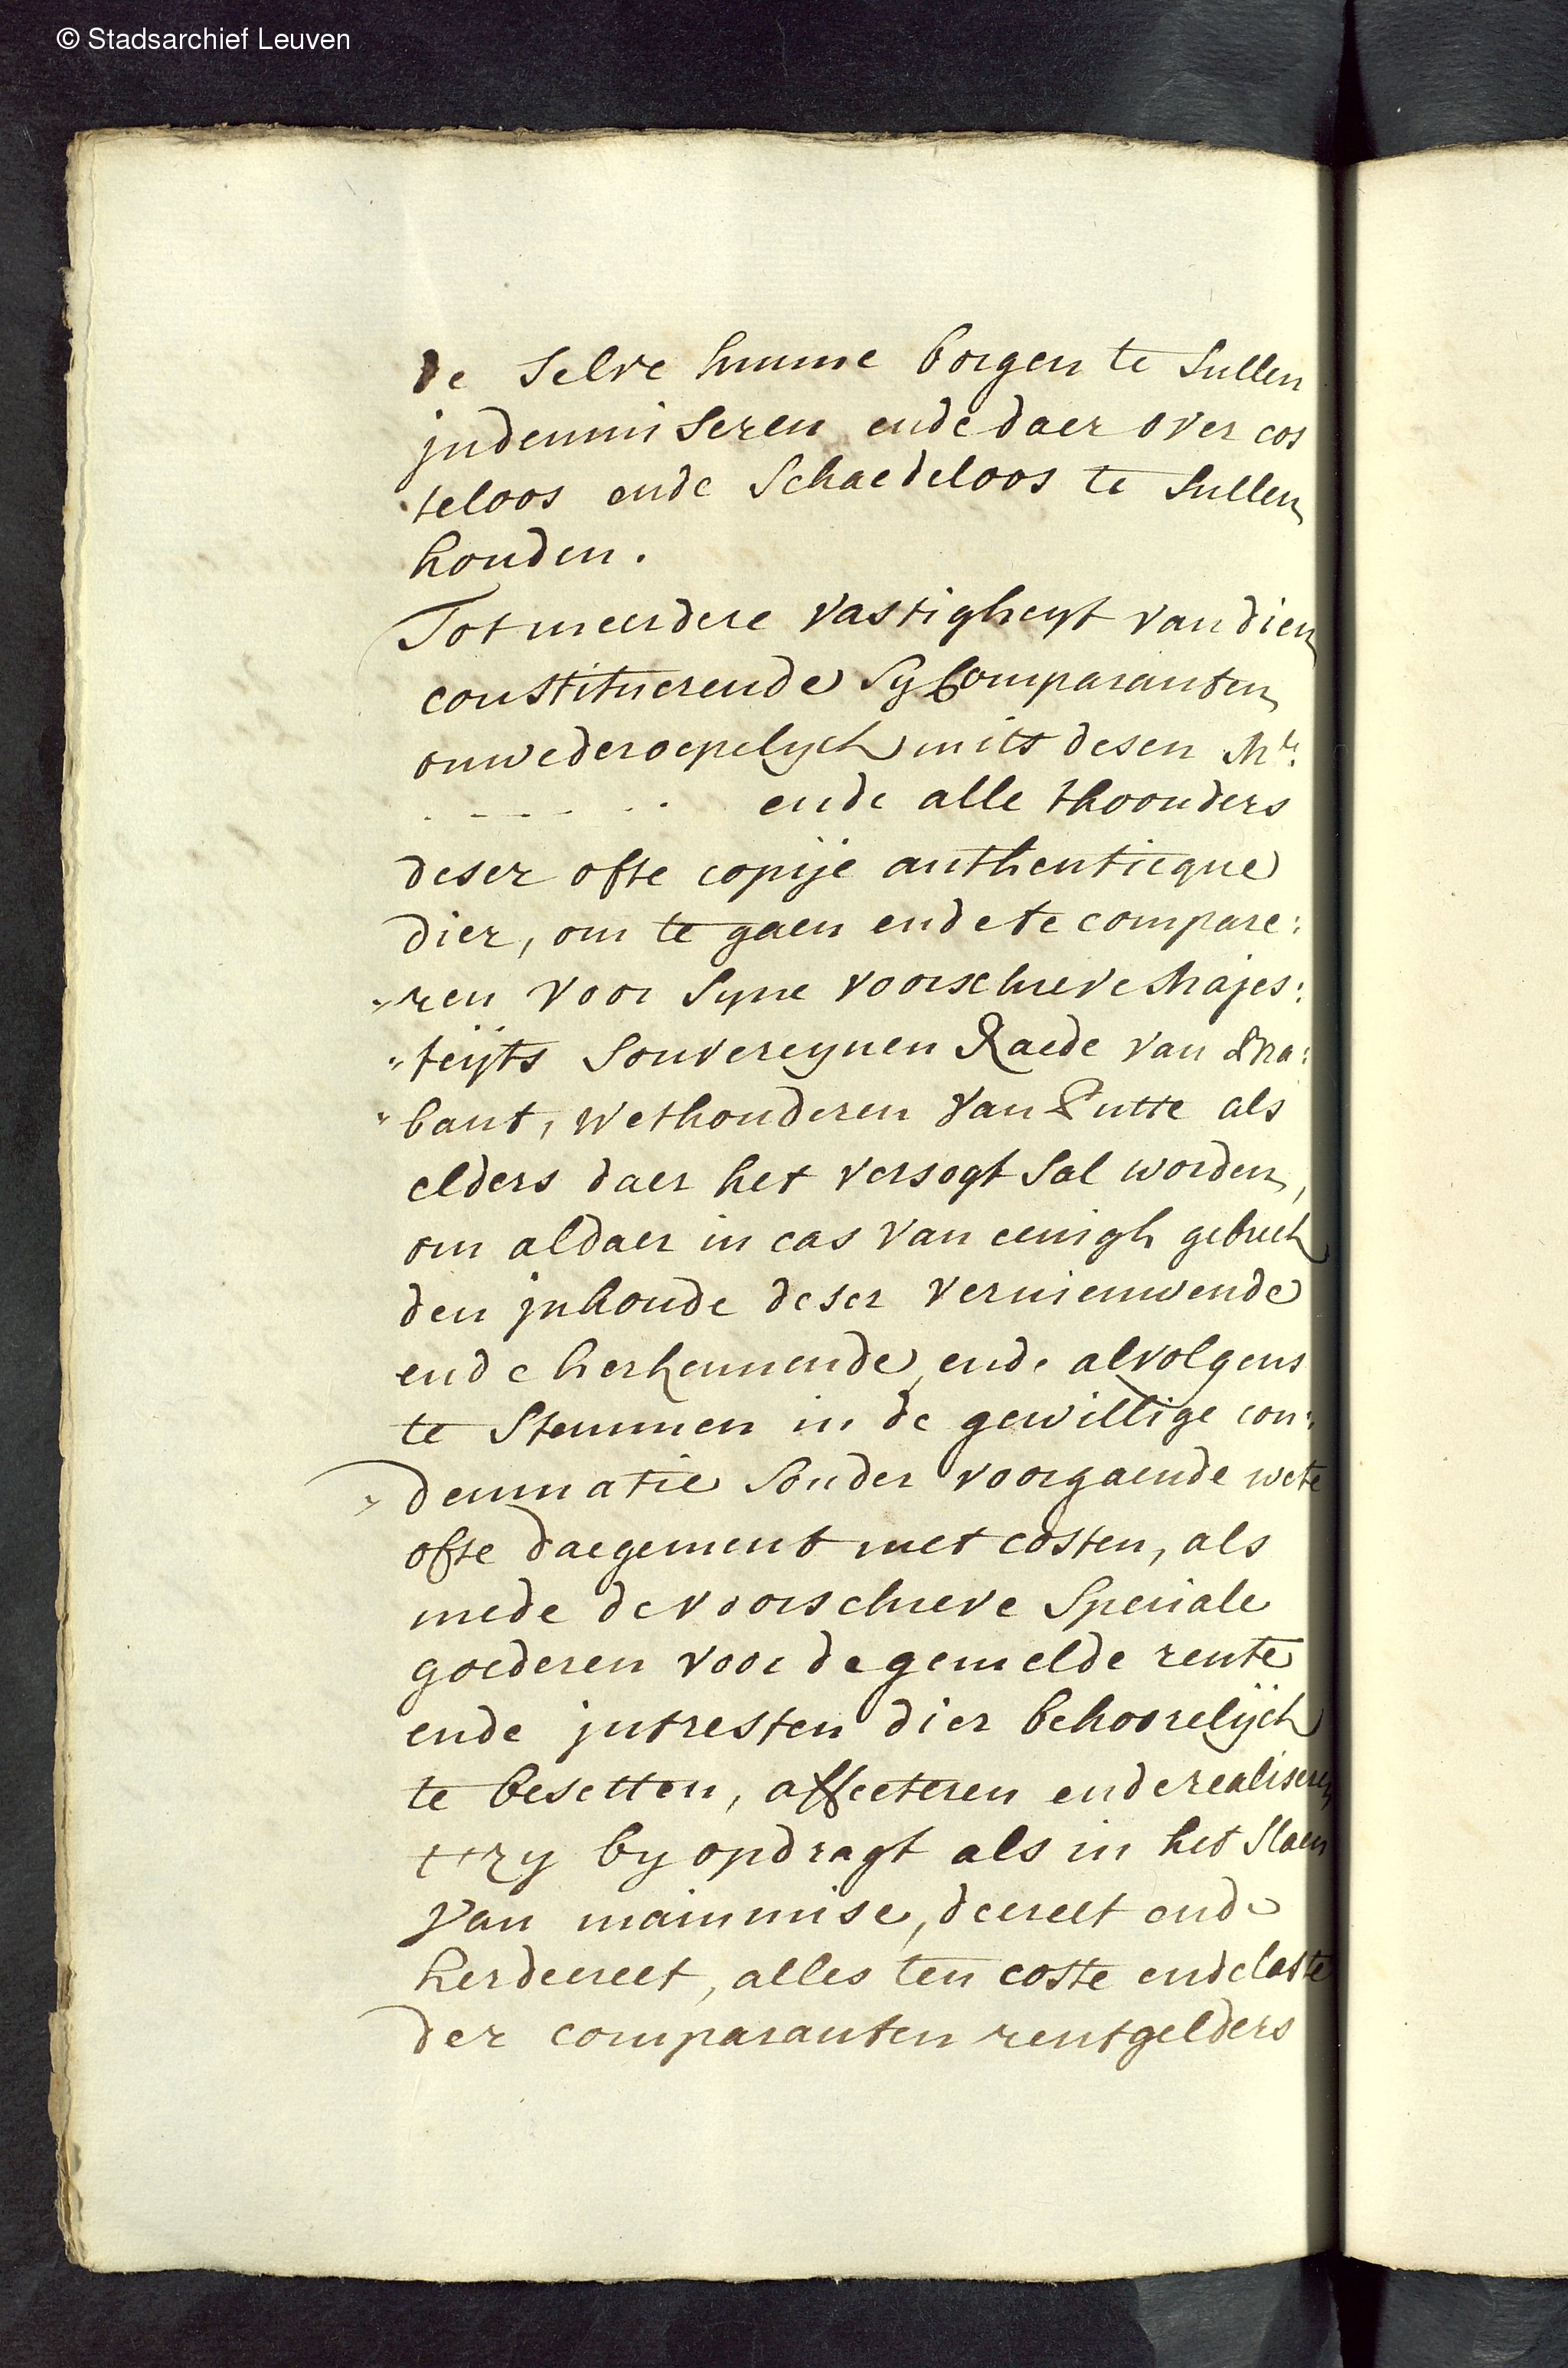 © Stadsarchief Leuven
de selve hunne borgen te sullen
jndemniseren ende daer over cos
teloos ende schaedeloos te sullen
houden.
Tot meerdere vastigheyt van dien
constituerende sy Comparanten
onwederoepelyck mits desen Mr.
. - - - . . ende alle thoonders
deser ofte copije authenticque
dier, om te gaen ende te compare:
"ren voor syne voorschreve Majes:
"teijts souvereynen Raede van Bra:
"bant, Wethouderen van Putte als
elders daer het versogt sal worden,
om aldaer in cas van eenigh gebreck
den jnhoude deser vernieuwende
ende herkennende, ende alvolgens
te stemmen in de gewillige con:
"demnatie sonder voorgaende wete
ofte daegement met costen, als
mede de voorschreve speciale
goederen voor de gemelde rente
ende jntresten dier behoorelijck
te besetten, affecteren ende realiseren
't zy by opdragt als in het slaen
van mainmise, decreet ende
herdecreet, alles ten coste ende laste
der comparanten rentgelders